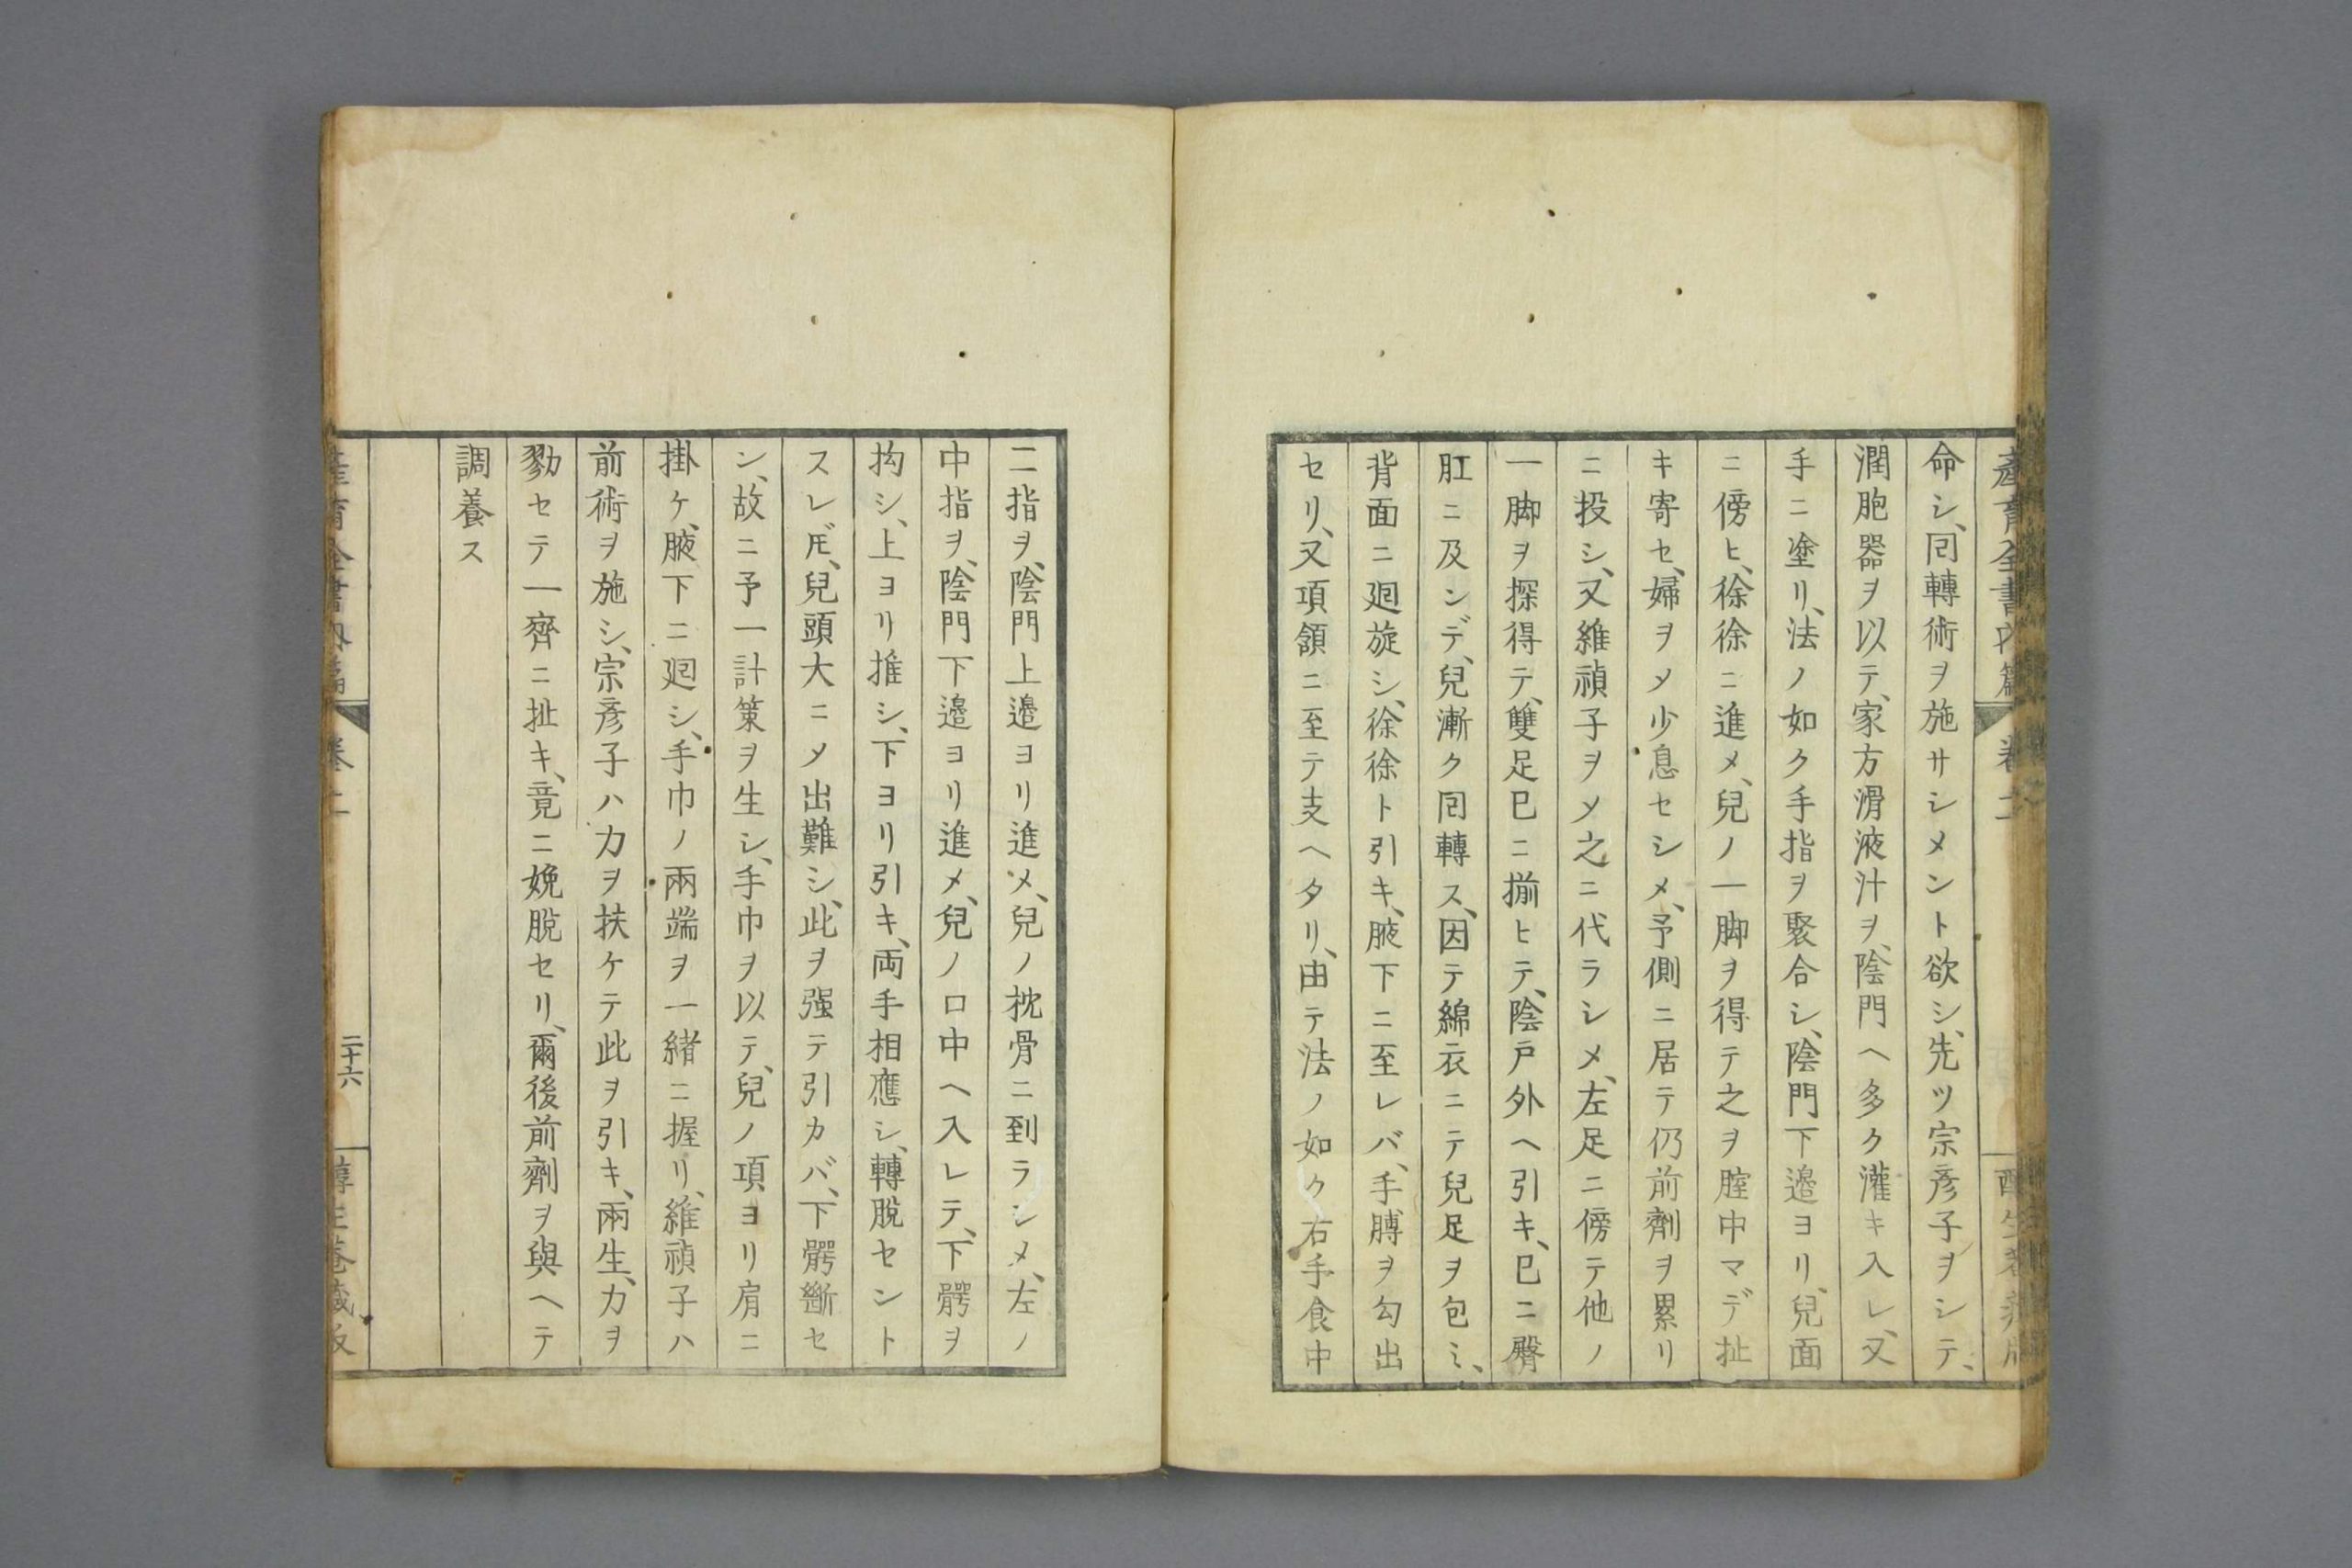 產育全書內篇 卷二
命シ、囘轉術ヲ施サシメント欲シ、先ツ宗彥子ヲシテ、
潤胞器ヲ以テ、家方滑液汁ヲ、陰門ヘ多ク灌キ入レ、又
手ニ塗リ、法ノ如ク手指ヲ聚合シ、陰門下邉ヨリ、兒面
ニ傍ヒ、徐徐ニ進メ、兒ノ一脚ヲ得テ之ヲ腟中マデ扯
キ寄セ、婦ヲメ少息セシメ、予側ニ居テ仍前劑ヲ累リ
ニ投シ、又維禎子ヲメ之ニ代ラシメ、左足ニ傍テ他ノ
一脚ヲ探得テ、雙足巳ニ揃ヒテ、陰戸外ヘ引キ、巳ニ臀
肛ニ及ンデ、兒漸ク囘轉ス、因テ綿衣ニテ兒足ヲ包ミ、
背面ニ廻旋シ、徐徐ト引キ、腋下ニ至レバ、手膊ヲ勾出
セリ、又項頷ニ至テ支ヘタリ、由テ法ノ如ク右手食中
二指ヲ、陰門上邉ヨリ進メ、兒ノ枕骨ニ到ラシメ、左ノ
中指ヲ、陰門下邉ヨリ進メ、兒ノ口中ヘ入レテ、下髂ヲ
抅シ、上ヨリ推シ、下ヨリ引キ、両手相應シ、轉脫セント
スレ𪜈、兒頭大ニメ出難シ、此ヲ强テ引カバ、下髂斷セ
シ、故ニ予一計策ヲ生シ、手巾ヲ以テ、兒ノ項ヨリ肩ニ
掛ケ、腋下ニ廻シ、手巾ノ兩端ヲ一緒ニ握リ、維禎子ハ
前術ヲ施シ、宗彥子ハ力ヲ扶ケテ此ヲ引キ、兩生、力ヲ
勠セテ一齊ニ扯キ、竟ニ娩脫セリ、爾後前劑ヲ與ヘテ
調養ス
產育全書內篇 卷二 二十六